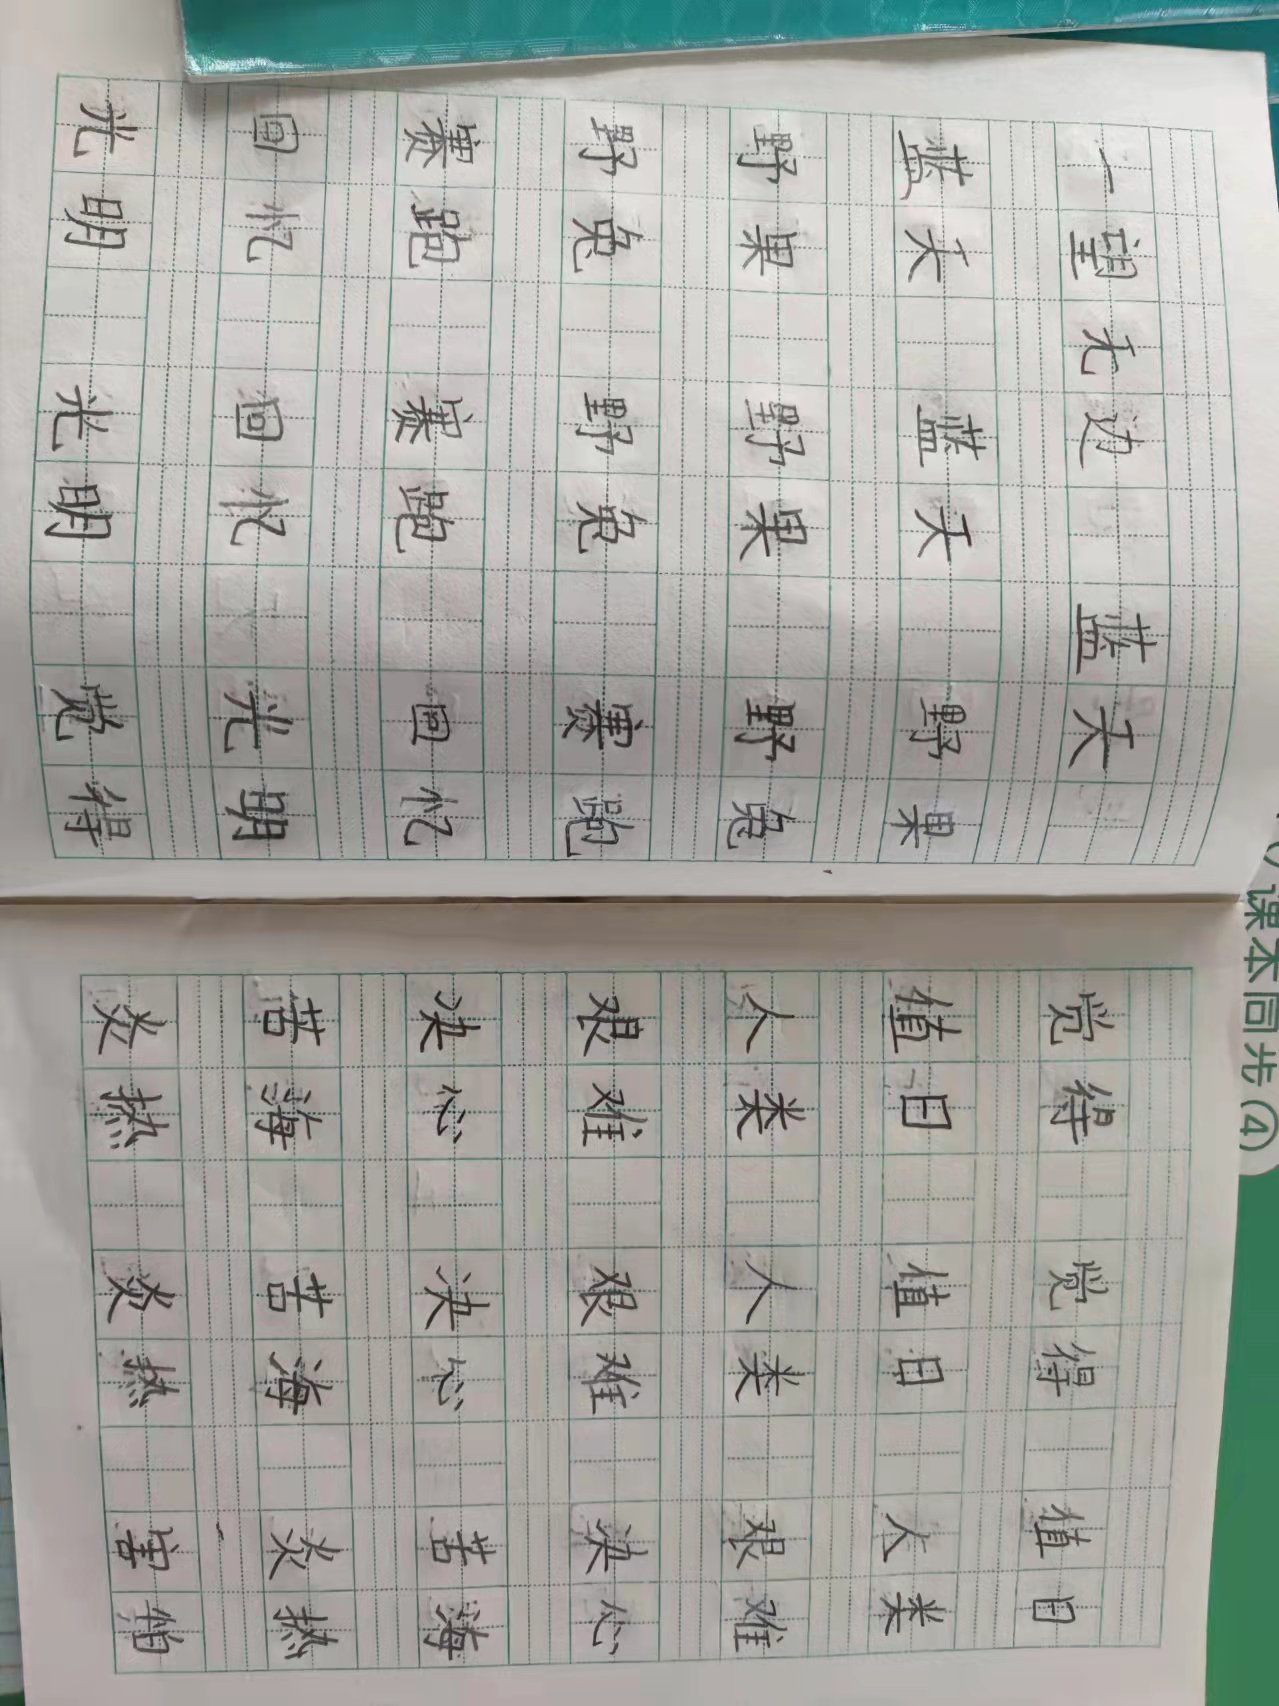 一望无边 蓝天
蓝天 蓝天 野果
野果 野果 野兔
野兔 野兔 赛跑
赛跑 赛跑 回忆
回忆 回忆 光明
光明 光明 觉得
觉得 觉得 值日
值日 值日 人类
人类 人类 艰难
艰难 艰难 决心
决心 决心 苦海
苦海 苦海 炎热
炎热 炎热 害怕
课本同步④